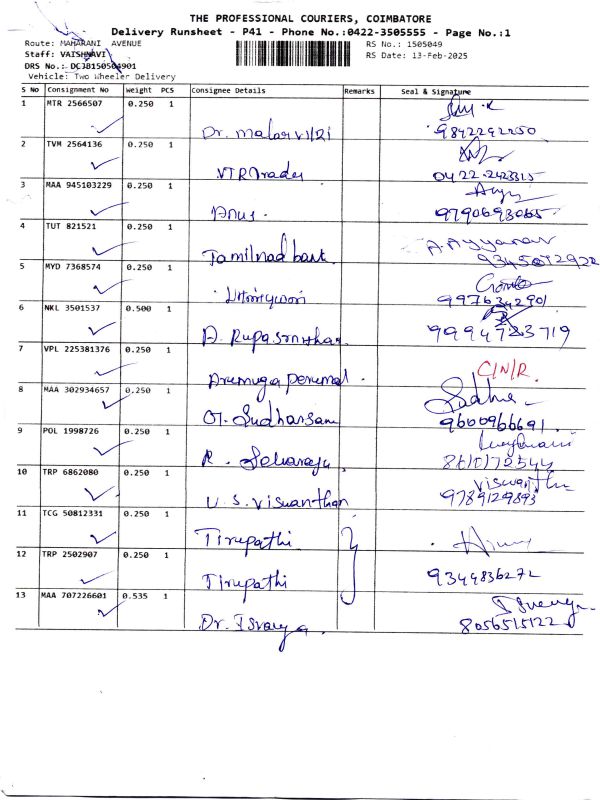 THE PROFESSIONAL COURIERS, COIMBATORE
Delivery Runsheet - P41 - Phone No.:0422-3505555 - Page No.:1
Route: MAHARANI AVENUE
RS No.: 1505049
Staff: VAISHNAVI
RS Date: 13-Feb-2025
DRS No.: DCJB150504901
Vehicle: Two Wheeler Delivery
S No Consignment No Weight PCS Consignee Details Remarks Seal & Signature
1 MTR 2566507 0.250 1
Dr. malarvizhi 9842292250
2 TVM 2564136 0.250 1
VTR Trades 0422-2423315
3 MAA 945103229 0.250 1
9790693065
4 TUT 821521 0.250 1 A. Ayyanar
Tamilnad bank 9345072922
5 MYD 7368574 0.250 1
9976342901
6 NKL 3501537 0.500 1
9994723719
7 VPL 225381376 0.250 1 C/N/R.
Arumuga perumal
8 MAA 302934657 0.250 1
Sudharsan 9600966691.
9 POL 1998726 0.250 1
R. Selvaraju
10 TRP 6862080 0.250 1 Viswanthan
U.S. Viswanthan 9789129893
11 TCG 50812331 0.250 1
Tirupathi
12 TRP 2502907 0.250 1
Tirupathi 9344836272
13 MAA 707226601 0.535 1
Dr. Isvarya 8056515122